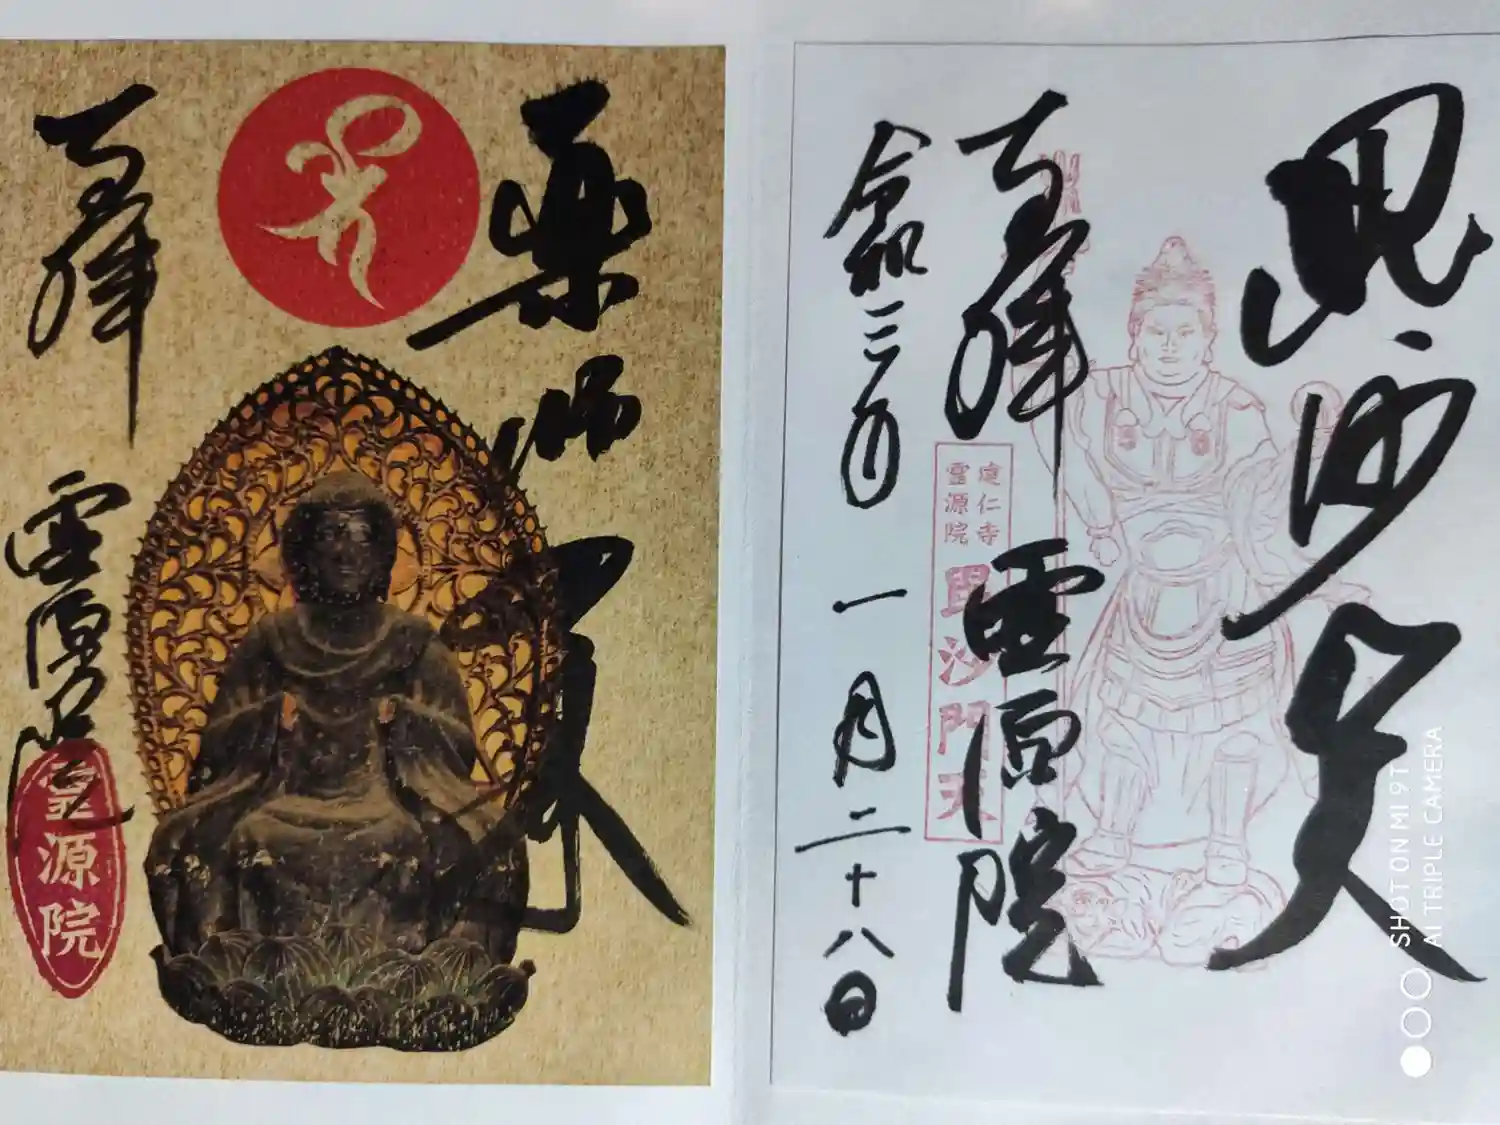 毘沙門天
奉拝
霊源院
建仁寺
霊源院
毘沙門天
令和三年 一月二十八日
薬師如来
奉拝
霊源院
霊源院
SHOT ON MI 9T
AI TRIPLE CAMERA